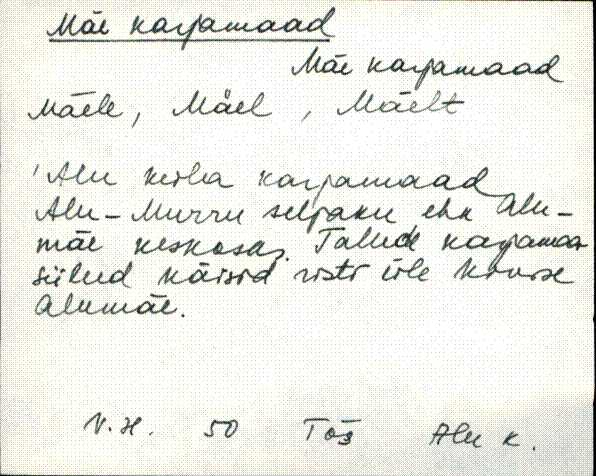 Mäe karjamaad
Mäe karjamaad
Mäele, Mäel, Mäelt
Alu küla karjamaad
Alu-Murru seljaku ehk Alu-
mäe keskosas. Talude karjamaa
siilud käisid risti üle kivise
Alumäe.
V. H. 50 Tõs Alu k.